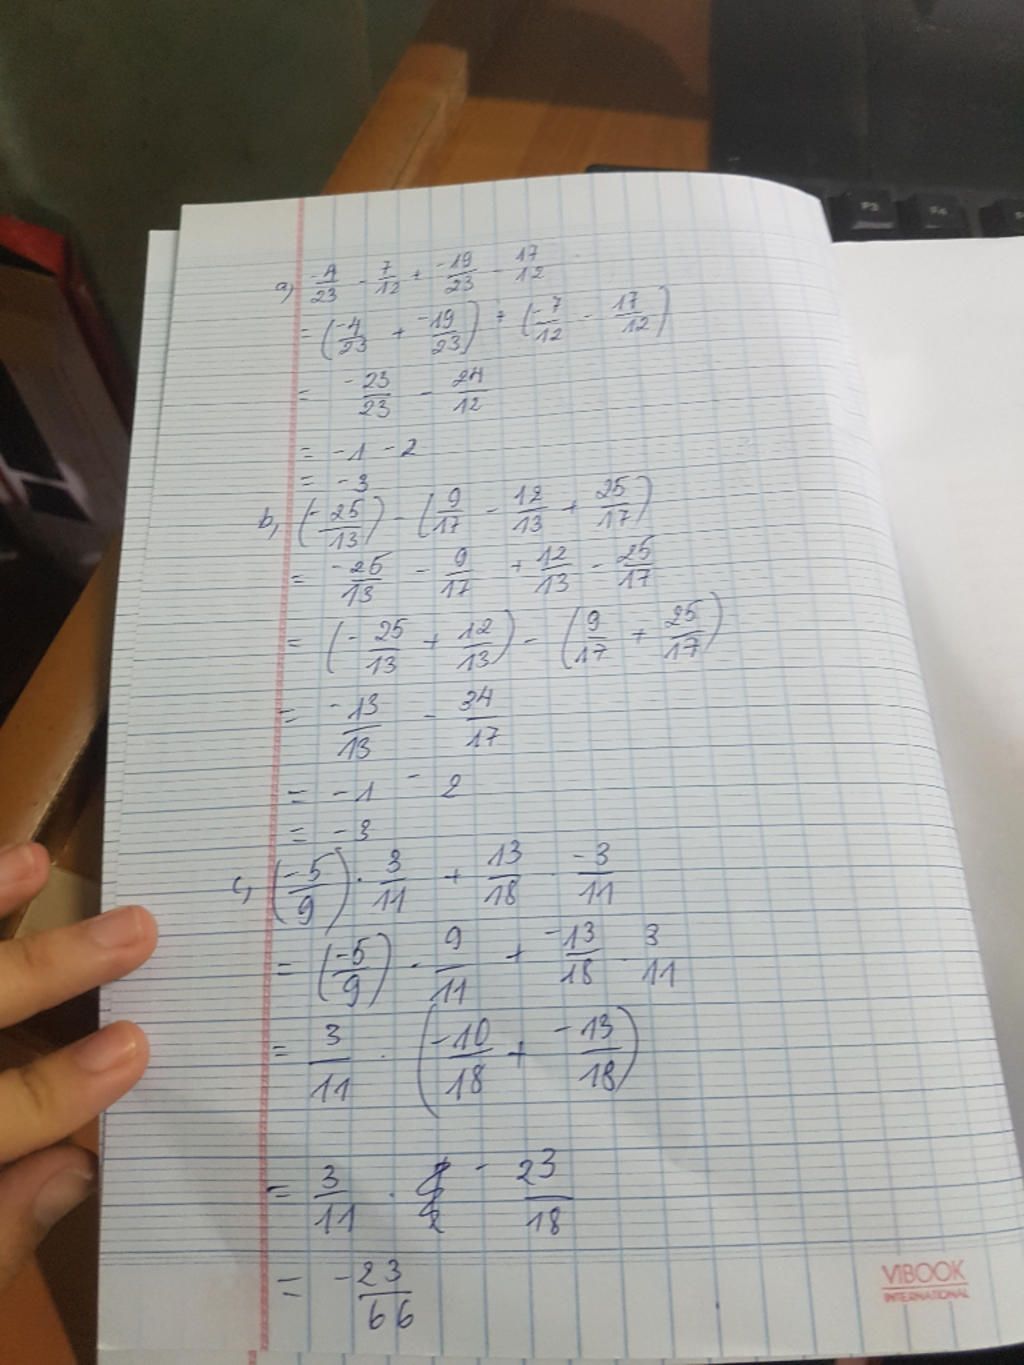 a, -4/23 - 7/12 + -19/23 - 17/12
= (-4/23 + -19/23) + (-7/12 - 17/12)
= -23/23 - 24/12
= -1 - 2
= -3
b, (-25/13) - (9/17 - 12/13 + 25/17)
= -25/13 - 9/17 + 12/13 - 25/17
= (-25/13 + 12/13) - (9/17 + 25/17)
= -13/13 - 34/17
= -1 - 2
= -3
c, (-5/9) . 3/11 + 13/18 . -3/11
= (-5/9) . 9/11 + -13/18 . 3/11
= 3/11 . (-10/18 + -13/18)
= 3/11 . - 23/18
= -23/66
VIBOOK
INTERNATIONAL
F3
F4